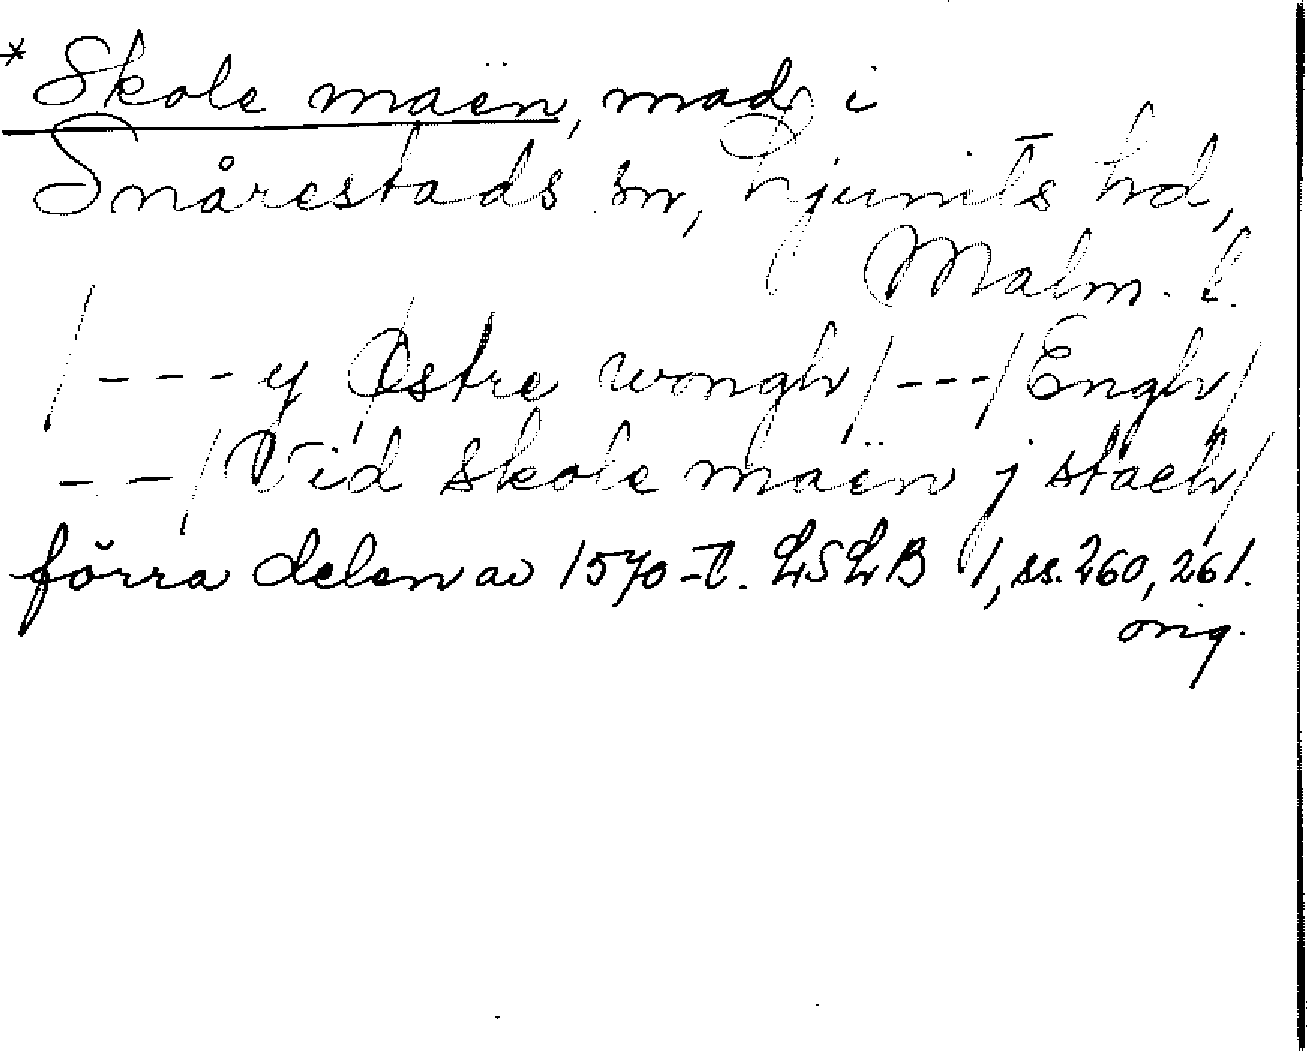 * Skole maën, mad i
Snårestads sn, Ljunits hd,
Malm. l.
/---y Østre wongh/---/Engh/
--/Vid skole maën j stæch/
förra delen av 1570-t. LSLB 1, ss. 260, 261.
orig.